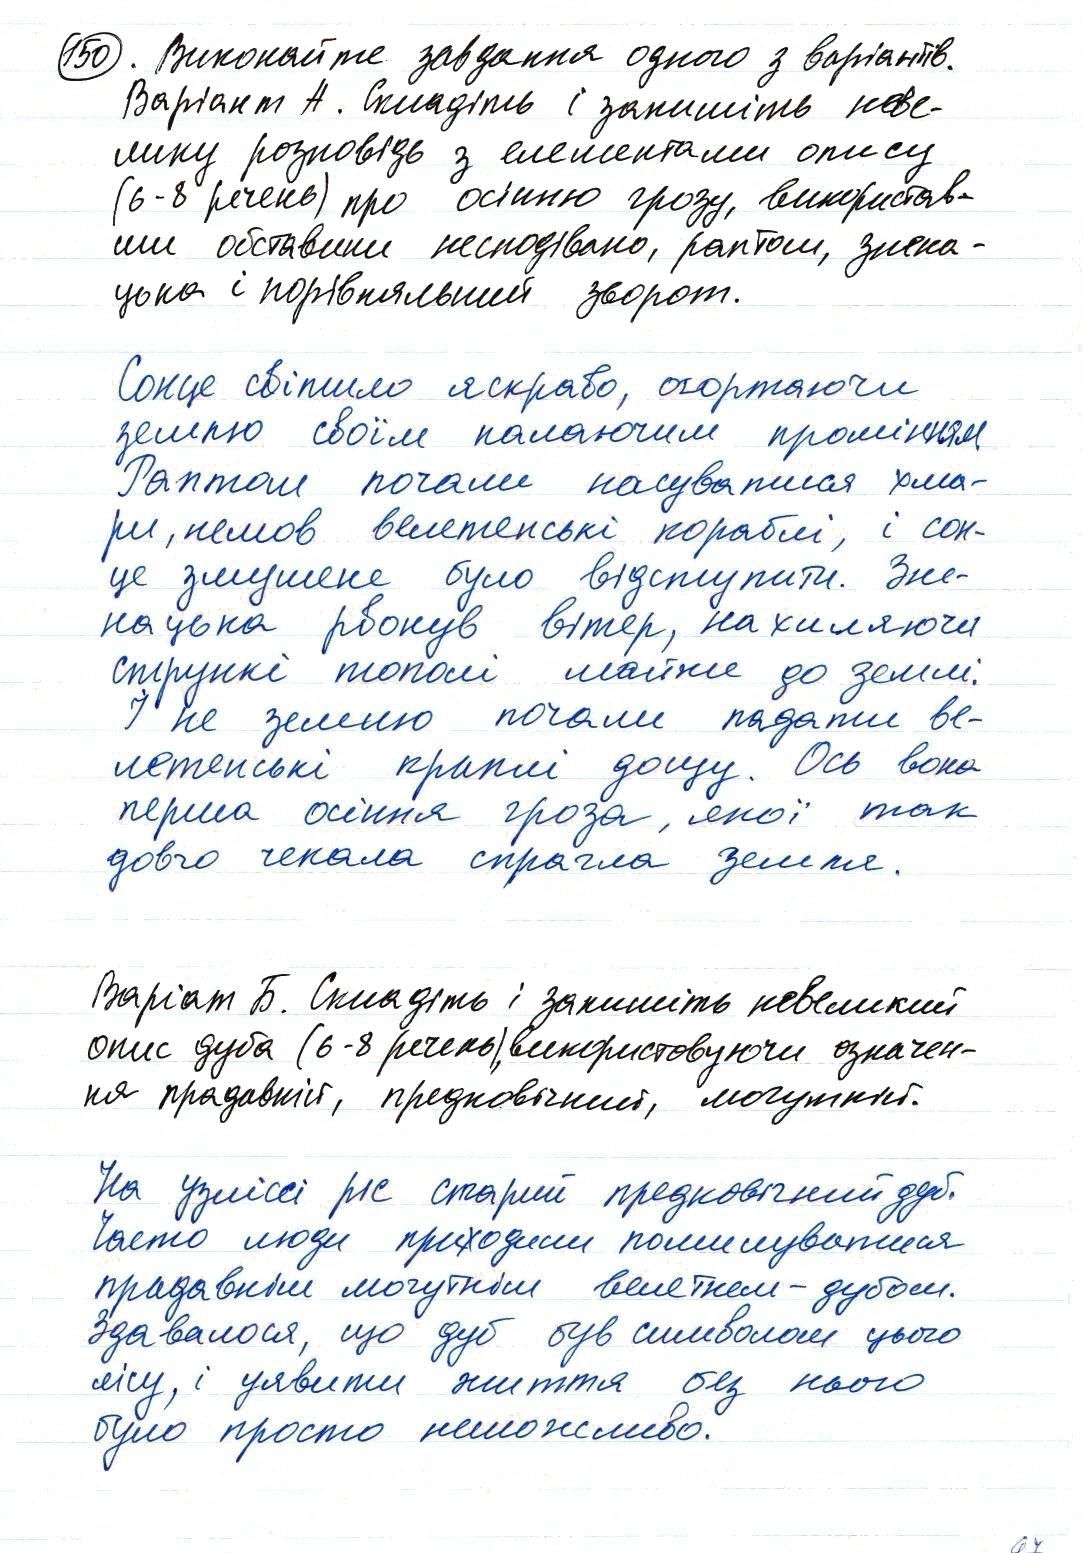 150. Виконайте завдання одного з варіантів.
Варіант А. Складіть і запишіть неве-
лику розповідь з елементами опису
(6-8 речень) про осінню грозу, використав-
ши обставини несподівано, раптом, знена-
цька і порівняльний зворот.
Сонце світило яскраво, огортаючи
землю своїм палаючим промінням.
Раптом почали насуватися хма-
ри, немов велетенські кораблі, і сон-
це змушене було відступити. Зне-
нацька рвонув вітер, нахиляючи
стрункі тополі майже до землі.
І не землю почали падати ве-
летенські краплі дощу. Ось вона
перша осіння гроза, якої так
довго чекала спрагла земля.
Варіат Б. Складіть і запишіть невеликий
опис дуба (6-8 речень), використовуючи означен-
ня прадавній, предковічний, могутній.
На узліссі ріс старий предковічний дуб.
Часто люди приходили помилуватися
прадавнім могутнім велетнем-дубом.
Здавалося, що дуб був символом цього
лісу, і уявити життя без нього
було просто неможливо.